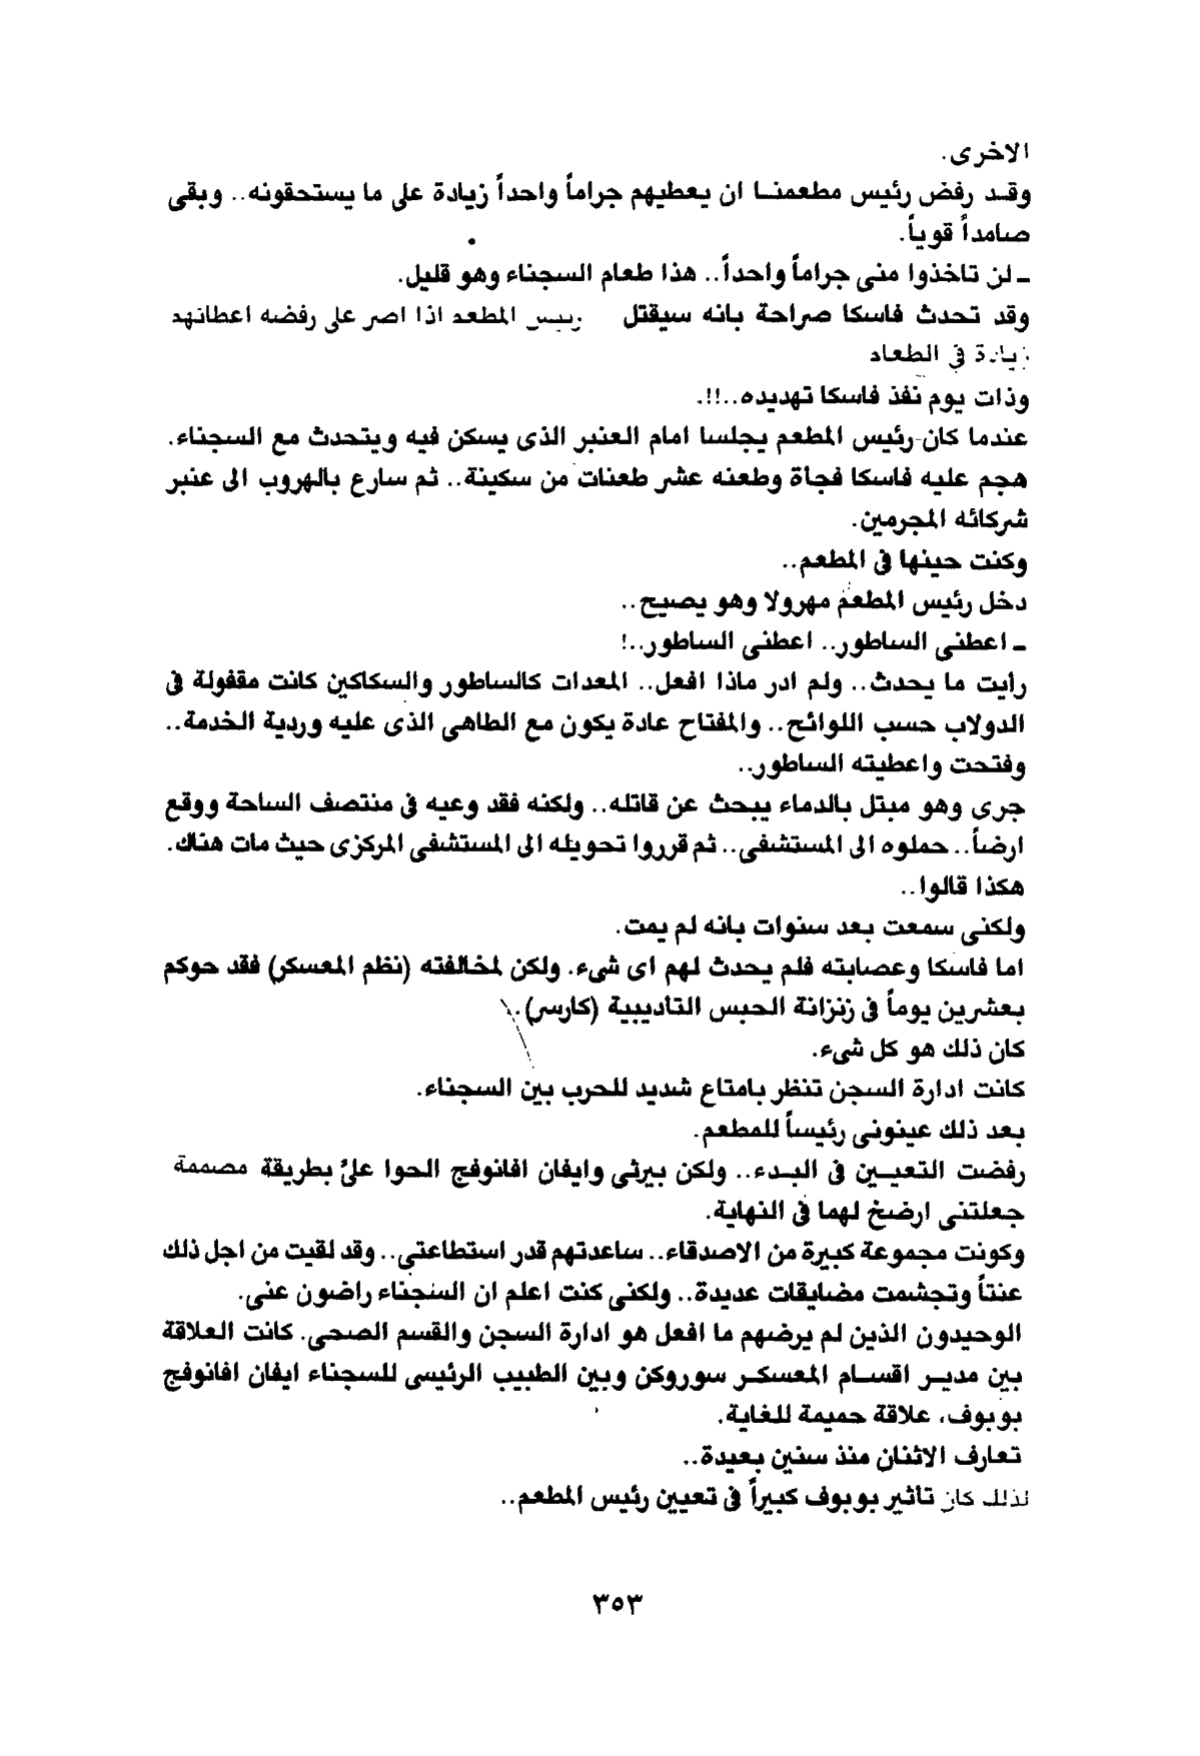 الاخرى.
وقد رفض رئيس مطعمنا ان يعطيهم جراماً واحداً زيادة على ما يستحقونه.. وبقى
صامداً قوياً.
ـ لن تاخذوا منى جراماً واحداً.. هذا طعام السجناء وهو قليل.
وقد تحدث فاسكا صراحة بانه سيقتل رئيس المطعم اذا اصر على رفضه اعطائهم
زيادة فى الطعام
وذات يوم نفذ فاسكا تهديده..!!.
عندما كان رئيس المطعم يجلسا امام العنبر الذى يسكن فيه ويتحدث مع السجناء.
هجم عليه فاسكا فجأة وطعنه عشر طعنات من سكينة.. ثم سارع بالهروب الى عنبر
شركائه المجرمين.
وكنت حينها فى المطعم..
دخل رئيس المطعم مهرولا وهو يصيح..
ـ اعطنى الساطور.. اعطنى الساطور..!
رأيت ما يحدث.. ولم ادر ماذا افعل.. المعدات كالساطور والسكاكين كانت مقفولة فى
الدولاب حسب اللوائح.. والمفتاح عادة يكون مع الطاهى الذى عليه وردية الخدمة..
وفتحت واعطيته الساطور..
جرى وهو مبتل بالدماء يبحث عن قاتله.. ولكنه فقد وعيه فى منتصف الساحة ووقع
ارضاً.. حملوه الى المستشفى.. ثم قرروا تحويله الى المستشفى المركزى حيث مات هناك.
هكذا قالوا..
ولكنى سمعت بعد سنوات بانه لم يمت.
اما فاسكا وعصابته فلم يحدث لهم اى شىء. ولكن لمخالفته (نظم المعسكر) فقد حوكم
بعشرين يوماً فى زنزانة الحبس التاديبية (كارسر).
كان ذلك هو كل شىء.
كانت ادارة السجن تنظر بامتاع شديد للحرب بين السجناء.
بعد ذلك عينونى رئيساً للمطعم.
رفضت التعيين فى البدء.. ولكن بيرثى وايفان افانوفج الحوا علىّ بطريقة مصممة
جعلتنى ارضخ لهما فى النهاية.
وكونت مجموعة كبيرة من الاصدقاء.. ساعدتهم قدر استطاعتى.. وقد لقيت من اجل ذلك
عنتاً وتجشمت مضايقات عديدة.. ولكنى كنت اعلم ان السجناء راضون عنى.
الوحيدون الذين لم يرضهم ما افعل هو ادارة السجن والقسم الصحى. كانت العلاقة
بين مدير اقسام المعسكر سوروكن وبين الطبيب الرئيسى للسجناء ايفان افانوفج
بوبوف، علاقة حميمة للغاية.
تعارف الاثنان منذ سنين بعيدة..
لذلك كان تأثير بوبوف كبيراً فى تعيين رئيس المطعم..
٣٥٣